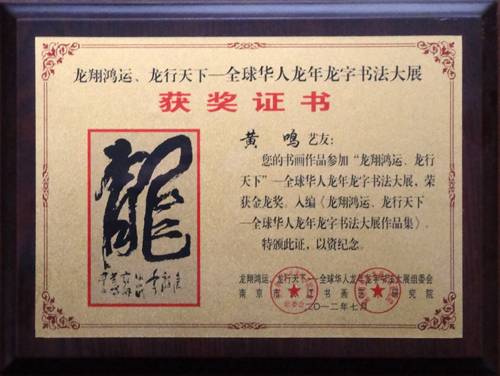 龙翔鸿运、龙行天下—全球华人龙年龙字书法大展
获奖证书
黄鸣艺友：
您的书画作品参加“龙翔鸿运、龙行
天下”—全球华人龙年龙字书法大展，荣
获金龙奖。入编《龙翔鸿运、龙行天下
—全球华人龙年龙字书法大展作品集》。
特颁此证，以资纪念。
龍
龙翔鸿运、龙行天下—全球华人龙年龙字书法大展组委会
南京市 江书画 研究院
二〇一二年七月